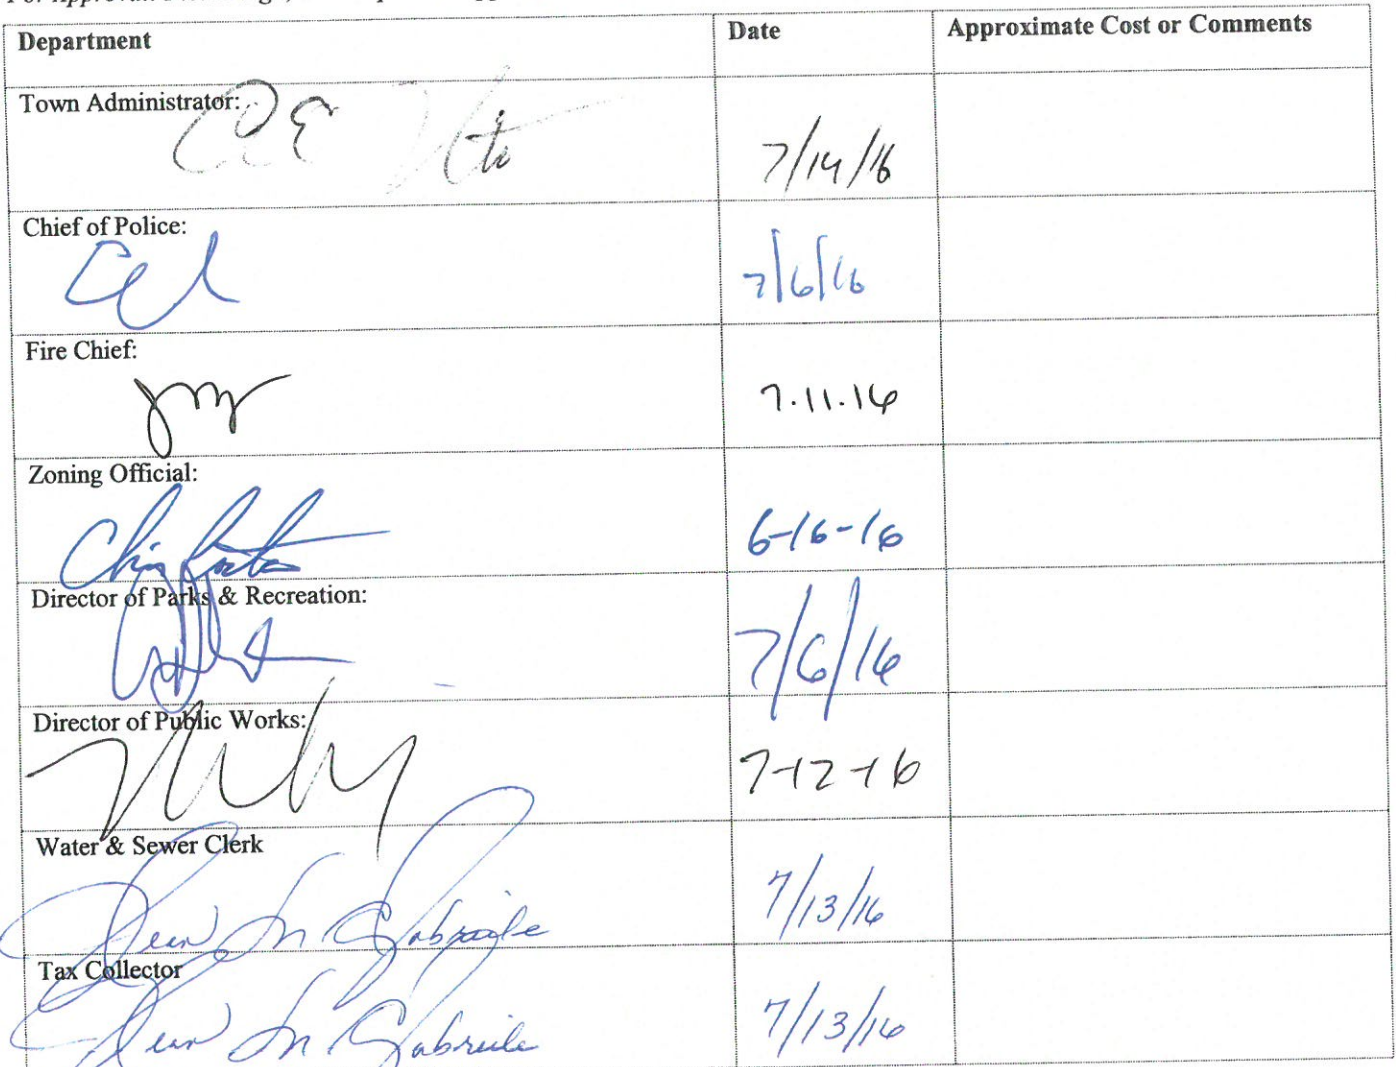 Department Date Approximate Cost or Comments
Town Administrator:
7/14/16
Chief of Police:
7/6/16
Fire Chief:
7.11.16
Zoning Official:
6-16-16
Director of Parks & Recreation:
7/6/16
Director of Public Works:
7-12-16
Water & Sewer Clerk
Jean M Gabriele
7/13/16
Tax Collector
Jean M Gabriele
7/13/16